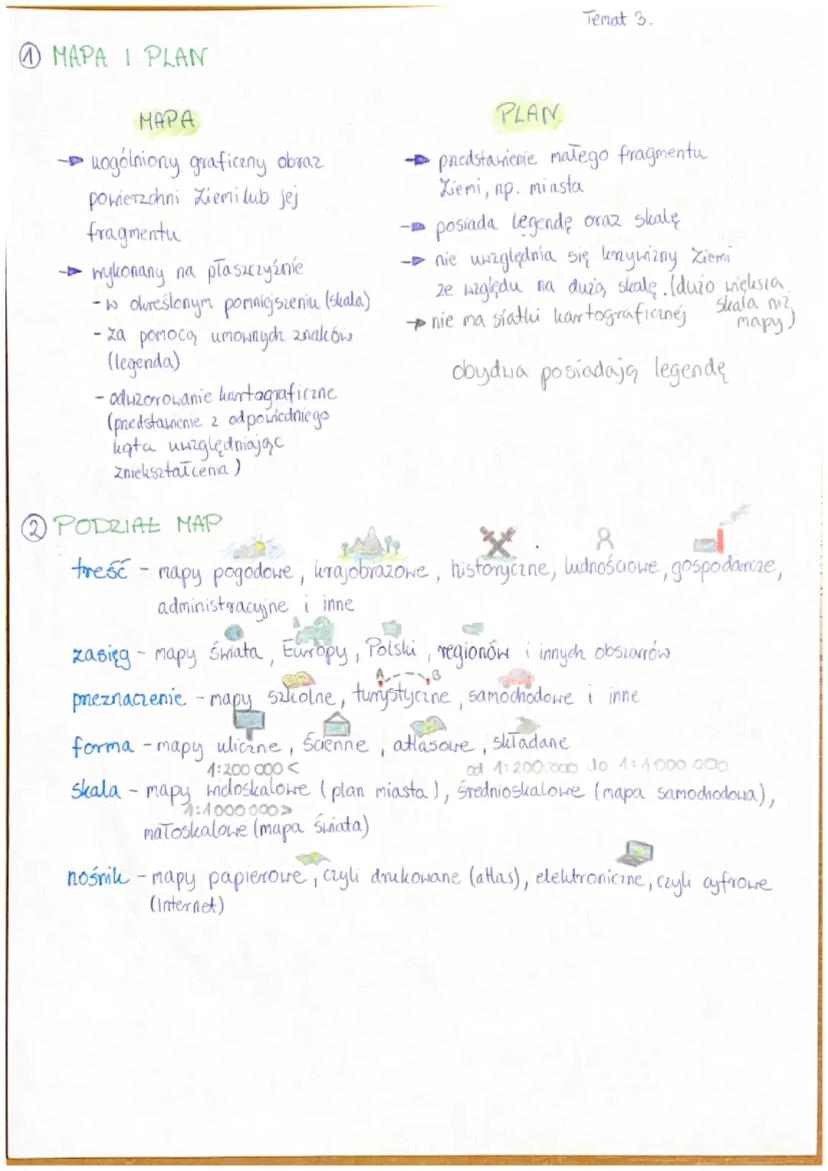 Temat 3.
① MAPA I PLAN
MAPA
→ uogólniony graficzny obraz
powierzchni Ziemi lub jej
fragmentu
→ wykonany na płaszczyźnie
- w określonym pomniejszeniu (skala)
- za pomocą umownych znaków
(legenda)
- odwzorowanie kartograficzne
(przedstawienie z odpowiedniego
kąta uwzględniając
zniekształcenia)
PLAN
→ przedstawienie małego fragmentu
Ziemi, np. miasta
→ posiada legendę oraz skalę
→ nie uwzględnia się krzywizny Ziemi
ze względu na dużą skalę. (dużo większa
skala niż
mapy)
→ nie ma siatki kartograficznej
obydwa posiadają legendę
② PODZIAŁ MAP
treść - mapy pogodowe, krajobrazowe, historyczne, ludnościowe, gospodarcze,
administracyjne i inne
zasięg - mapy świata, Europy, Polski, regionów i innych obszarów
A B
przeznaczenie - mapy szkolne, turystyczne, samochodowe i inne
forma - mapy uliczne, ścienne, atlasowe, składane
1:200 000 < od 1:200 000 do 1:1 000 000
skala - mapy wieloskalowe (plan miasta), średnioskalowe (mapa samochodowa),
1:1 000 000>
małoskalowe (mapa świata)
nośnik - mapy papierowe, czyli drukowane (atlas), elektroniczne, czyli cyfrowe
(Internet)